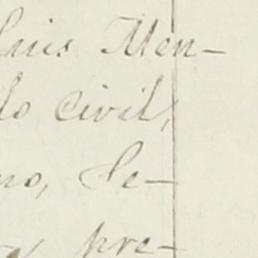 Luis Men-
do Civil,
no, Se-
pre-